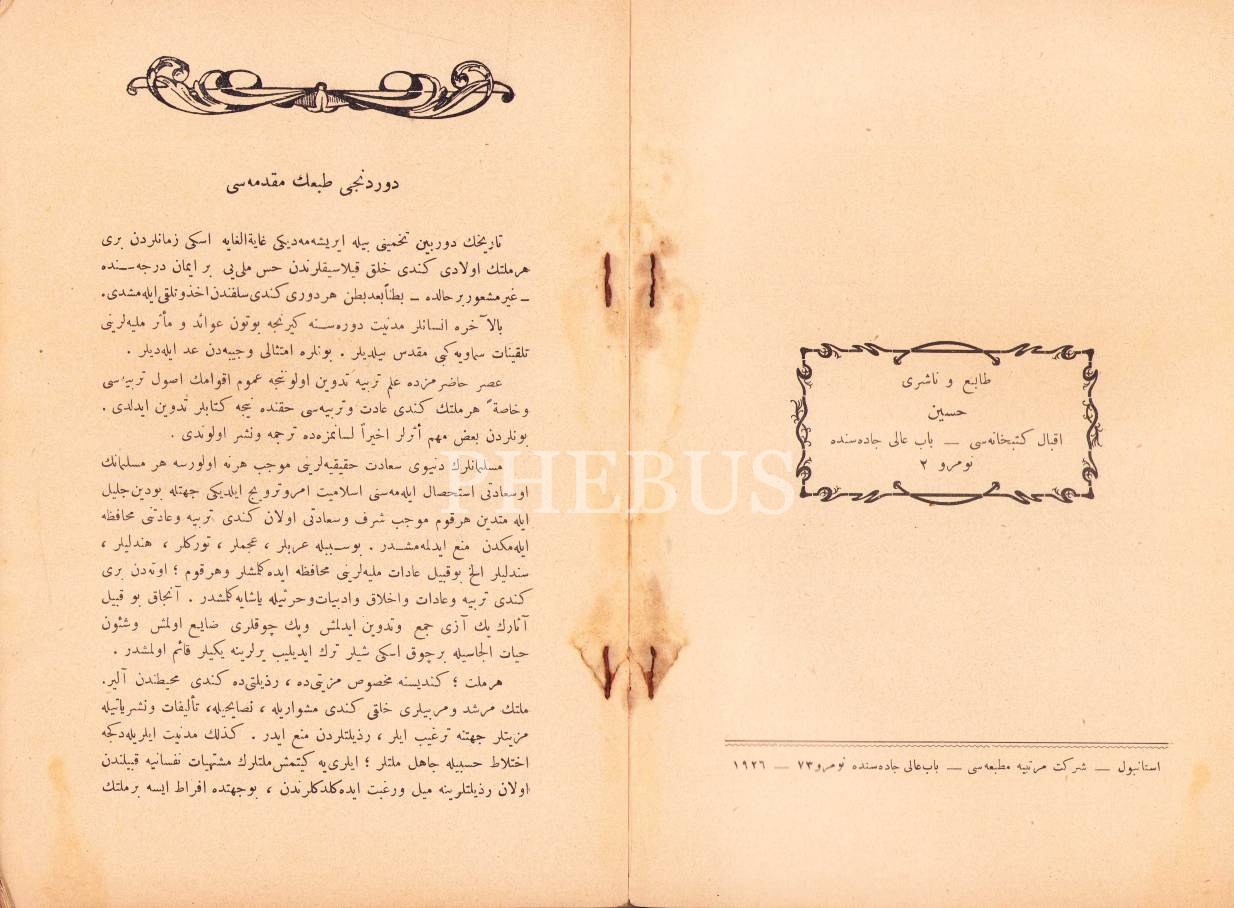 طابع و ناشری
حسین
اقبال كتبخانه‌سی — باب عالی جاده‌سنده
نومرو ٢
استانبول — شركت مرتبیه مطبعه‌سی — باب عالی جاده‌سنده نومرو ٧٣ — ١٩٢٦
دوردنجی طبعك مقدمه‌سی
تاریخك دوربین تخمینی بیله ایریشه‌مه‌دیكی غایةالغایه اسكی زمانلردن بری
هرملتك اولادی كندی خلق قیلاسیقلرندن حس ملی‌یی بر ایمان درجه‌سنده
ـ غیر مشعور بر حالده ـ بطناًبعدبطن هر دوری كندی سلفندن اخذ و تلقی ایله‌مشدی.
بالآخره انسانلر مدنیت دوره‌سنه كیرنجه بوتون عوائد و مأثر ملیه‌لرینی
تلقینات سماویه كبی مقدس بیلدیلر . بونلره امتثالی وجیبه‌دن عد ایله‌دیلر .
عصر حاضرمزده علم تربیه تدوین اولونجه عموم اقوامك اصول تربیه‌سی
وخاصةً هرملتك كندی عادت وتربیه‌سی حقنده نیجه كتابلر تدوین ایدلدی .
بونلردن بعض مهم أثرلر اخیراً لسانمزه‌ده ترجمه ونشر اولوندی .
مسلمانلرك دنیوی سعادت حقیقیه‌لرینی موجب هرنه اولورسه هر مسلمانك
اوسعادتی استحصال ایله‌مه‌سنی اسلامیت امروترویج ایلدیكی جهتله بودین‌جلیل
ایله متدین هرقوم موجب شرف وسعادتی اولان كندی تربیه وعادتنی محافظه
ایله‌مكدن منع ایدلمه‌مشدر . بوسببله عربلر ، عجملر ، توركلر ، هندلیلر ،
سندلیلر الخ بوقبیل عادات ملیه‌لرینی محافظه ایده‌كلمشلر وهرقوم ؛ اوته‌دن بری
كندی تربیه وعادات واخلاق وادبیات وحرثیله یاشایه‌كلمشدر . آنجاق بو قبیل
آثارك پك آزی جمع وتدوین ایدلمش وپك چوقلری ضایع اولمش وشئون
حیات الجاسیله برچوق اسكی شیلر ترك ایدیلیب یرلرینه یكیلر قائم اولمشدر .
هرملت ؛ كندیسنه مخصوص مزیتی‌ده ، رذیلتی‌ده كندی محیطندن آلیر.
ملتك مرشد ومربیلری خلقی كندی مشواریله ، نصایحیله، تألیفات ونشریاتیله
مزیتلر جهتنه ترغیب ایلر ، رذیلتلردن منع ایدر . كذلك مدنیت ایلریله‌دكجه
اختلاط حسبیله جاهل ملتلر ؛ ایلری‌یه كیتمش ملتلرك مشتهیات نفسانیه قبیلندن
اولان رذیلتلرینه میل ورغبت ایده‌كلدكلرندن ، بوجهتده افراط ایسه برملتك
PHEBUS